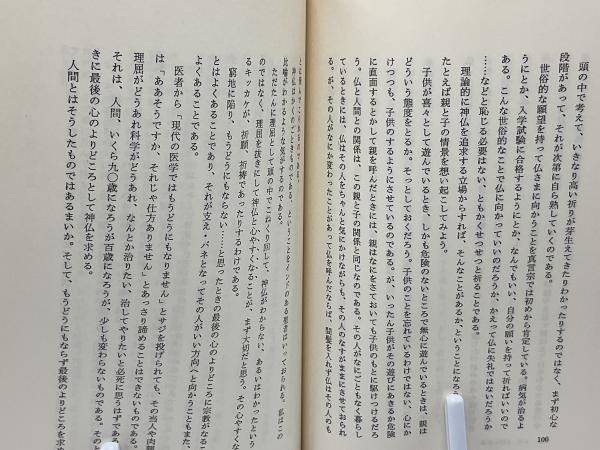 頭の中で考えて、いきなり高い祈りが芽生えてきたりわかったりするのではなく、まず初心な
段階があって、それが次第に自ら熟していくのである。
世俗的な願望を持って仏さまに向かうことを真言宗では初めから肯定している。病気が治るよ
うにとか、入学試験に合格するようにとか、なんでもいい、自分の願いを持って祈ればいいので
ある。こんな世俗的なことで仏に向かっていいのだろうか、かえって仏に失礼ではないだろうか
……などと恥じる必要はない、ともかくせつせつと祈ることである。
理論的に神仏を追求する立場からすれば、そんなことがあるか、ということになろ
たとえば親と子の情景を想い起こしてみよう。
子供が喜々として遊んでいるとき、しかも危険のないところで無心に遊んでいるときは、親は
どういう態度をとるか。そっとしておくだろう。子供のことを忘れているわけではない、心にか
けつつも、子供のするようにさせているのである。が、いったん子供がその遊びにあきるか危険
に直面するとかして親を呼んだときには、親はなにをさておいても子供のもとに駆けつけるだろ
う。仏と人間との関係は、この親と子の関係と同じなのである。その人がなにごともなく暮らし
ているときには、仏はその人をちゃんと気にかけながらも、その人のなすがままにさせておられ
る。が、その人がなにか変わったことがあって仏を呼んだならば、間髪を入れず仏はその人のも
100
神仏は
ということをインドのある聖者はいっておられる。私はこの
比喩がわかるような気がするのである。
ただたんに理屈として頭の中でこねくり回して、神仏がわからない、あるいはわかったという
のではなく、理屈を抜きにして神仏と心やすくなることが、まず大切だと思う。その心やすくな
るキッカケが、祈願、祈祷であったりするわけである。
窮地に陥り、もうどうにもならない……と思ったときの最後の心のよりどころに宗教がなるこ
とはよくあることであり、それが支え・バネとなってその人がいい方向へと向かうこともまた、
よくあることである。
医者から「現代の医学ではもうどうにもなりません」とサジを投げられても、その当人や肉親
は「ああそうですか、それじゃ仕方ありません」とあっさり諦めることはできないものである。
理屈がどうあれ科学がどうあれ、なんとか治りたい、治してやりたいと必死に思うはずである
それは、人間、いくら九〇歳になろうが百歳になろうが、少しも変わらないものである。そのと
きに最後の心のよりどころとして神仏を求める。
人間とはそうしたものではあるまいか。そして、もうどうにもならず最後のよりどころを求め